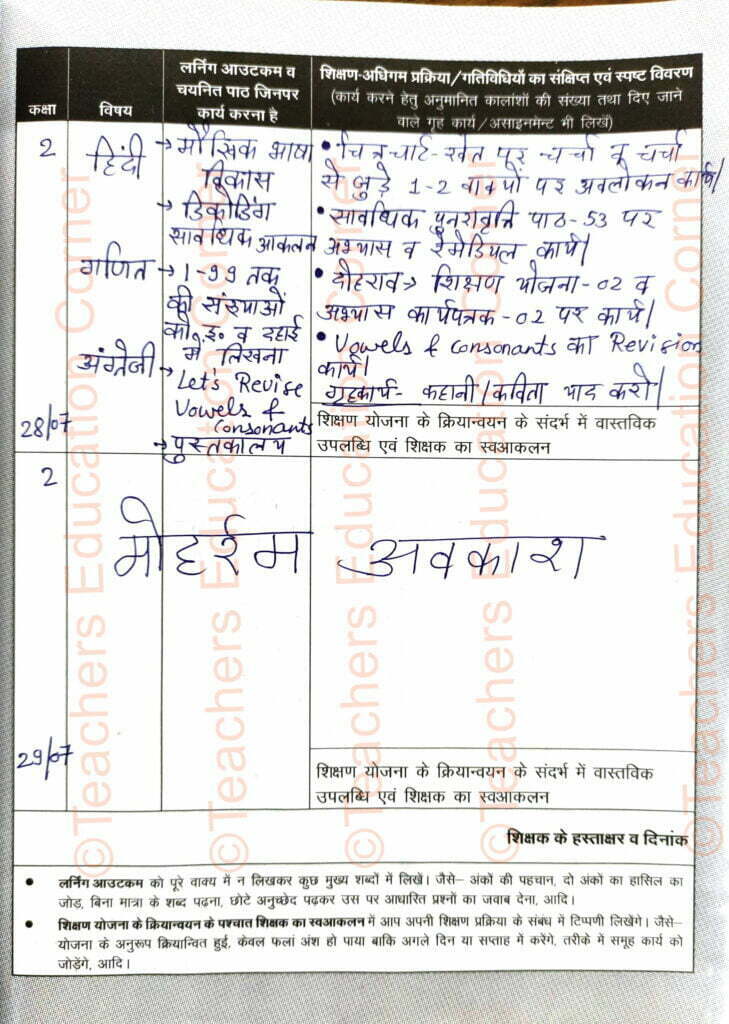 कक्षा
विषय
लर्निंग आउटकम व
चयनित पाठ जिनपर
कार्य करना है
शिक्षण-अधिगम प्रक्रिया/गतिविधियों का संक्षिप्त एवं स्पष्ट विवरण
(कार्य करने हेतु अनुमानित कालांशों की संख्या तथा दिए जाने
वाले गृह कार्य/असाइनमेंट भी लिखें)
2
हिंदी
→ मौखिक भाषा
विकास
→ डिकोडिंग
सावधिक आकलन
• चित्रचार्ट-खेत पर चर्चा व चर्चा
से जुड़े 1-2 वाक्यों पर अवलोकन कार्य।
• सावधिक पुनरावृत्ति पाठ-53 पर
अभ्यास व रेमेडियल कार्य।
गणित
→ 1-99 तक
की संख्याओं
को इ० व दहाई
में लिखना
• दोहराव → शिक्षण योजना-02 व
अभ्यास कार्यपत्रक-02 पर कार्य।
अंग्रेजी
→ Let's Revise
Vowels &
Consonants
→ पुस्तकालय
• Vowels & consonants का Revision
कार्य।
गृहकार्य- कहानी/कविता याद करो।
28/07
शिक्षण योजना के क्रियान्वयन के संदर्भ में वास्तविक
उपलब्धि एवं शिक्षक का स्वआकलन
2
मोहर्रम अवकाश
29/07
शिक्षण योजना के क्रियान्वयन के संदर्भ में वास्तविक
उपलब्धि एवं शिक्षक का स्वआकलन
शिक्षक के हस्ताक्षर व दिनांक
• लर्निंग आउटकम को पूरे वाक्य में न लिखकर कुछ मुख्य शब्दों में लिखें। जैसे– अंकों की पहचान, दो अंकों का हासिल का
जोड़, बिना मात्रा के शब्द पढ़ना, छोटे अनुच्छेद पढ़कर उस पर आधारित प्रश्नों का जवाब देना, आदि।
• शिक्षण योजना के क्रियान्वयन के पश्चात शिक्षक का स्वआकलन में आप अपनी शिक्षण प्रक्रिया के संबंध में टिप्पणी लिखेंगे। जैसे–
योजना के अनुरूप क्रियान्वित हुई, केवल फलां अंश हो पाया बाकि अगले दिन या सप्ताह में करेंगे, तरीके में समूह कार्य को
जोड़ेंगे, आदि।
©Teachers Education Corner
©Teachers Education Corner
©Teachers Education Corner
©Teachers Education Corner
©Teachers Education Corner